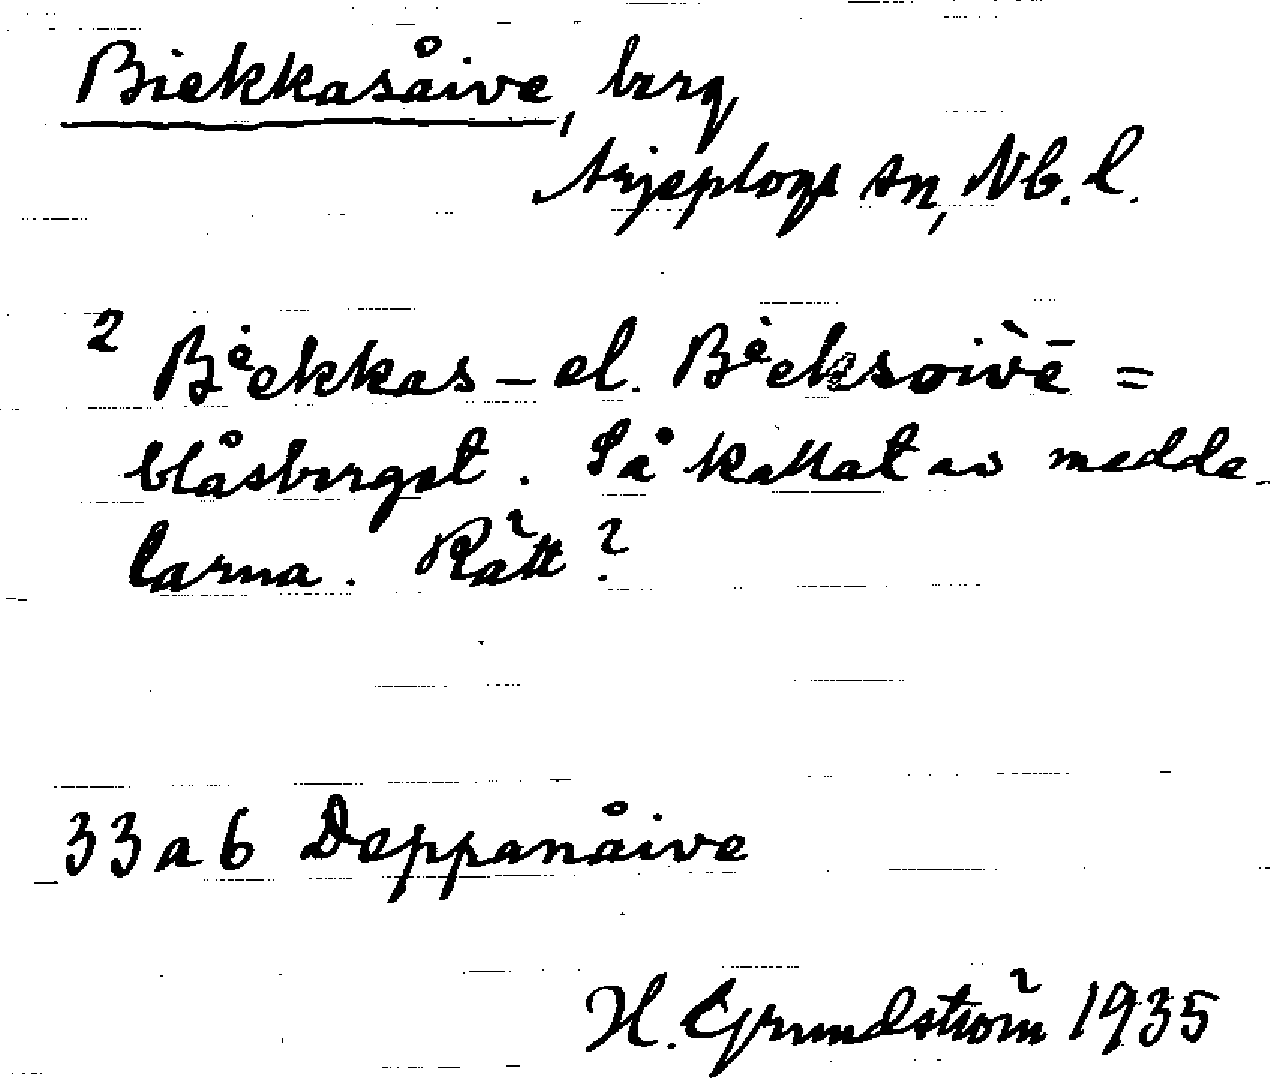 Biekkasåive, berg
Arjeplogs sn, Nb. l.
² Bi̇̀ekkas- el. Bi̇̀eksoìvē =
blåsberget. Så kallat av medde-
larna. Rätt?
33 a 6 Deppanåive
H. Grundström 1935